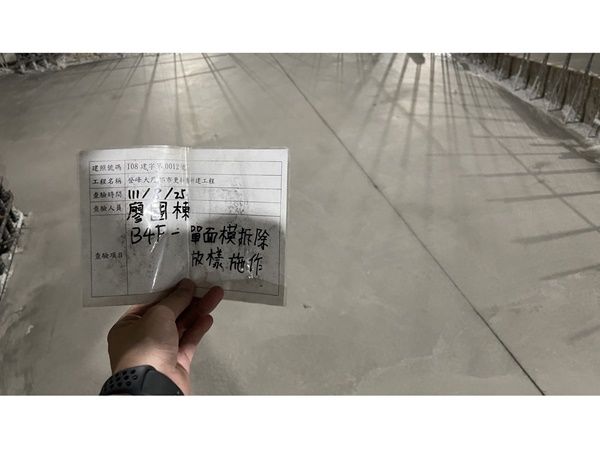 建照號碼 108建字第0012號
工程名稱 登峰大 都市更新 建工程
查驗時間 111/ /25
查驗人員 廖國棟
查驗項目 B4F-單面模拆除
放樣施作